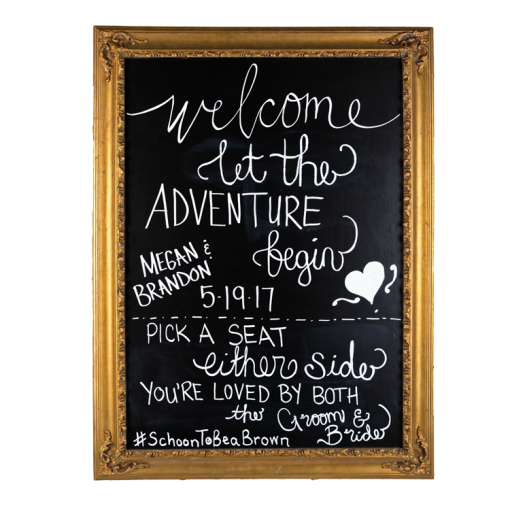 welcome
let the
ADVENTURE
begin
MEGAN &
BRANDON
5·19·17
PICK A SEAT
either side
YOU'RE LOVED BY BOTH
the Groom &
Bride
#SchoonToBeaBrown